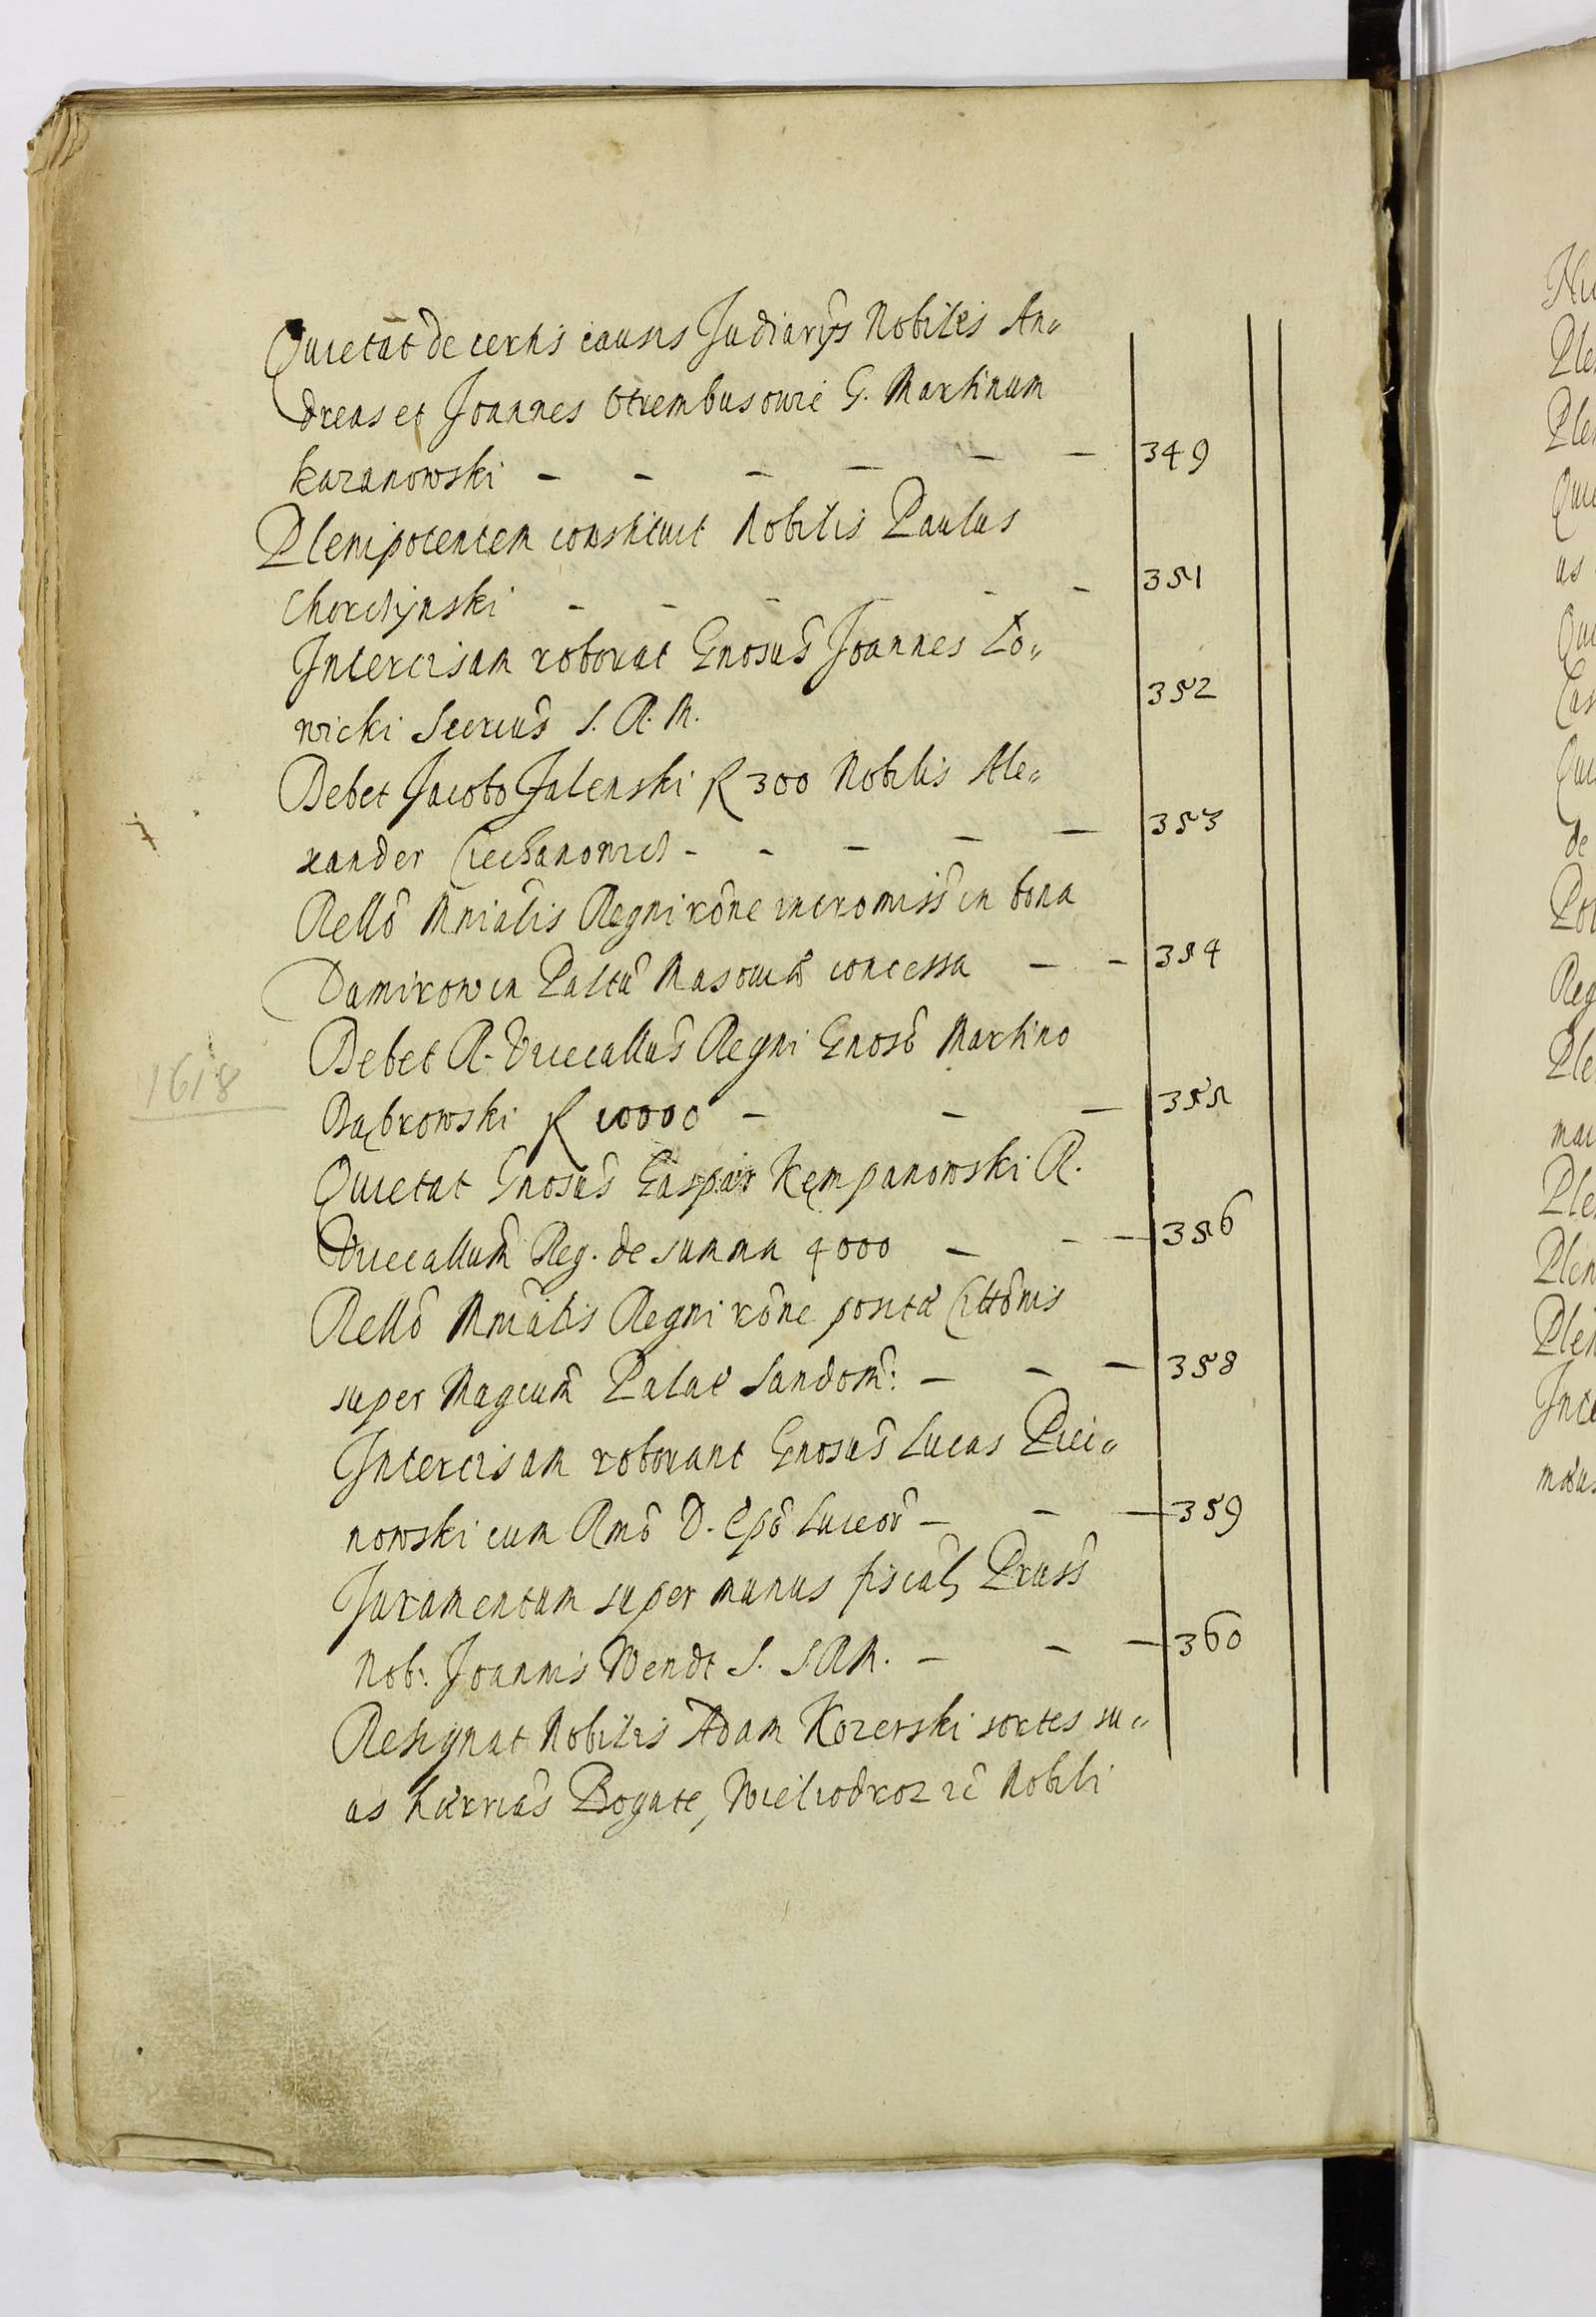 Quietat de certis causis Judiarys Nobiles An„
dreas et Joannes Otrembusowie G. Martinum
Kazanowski - - - - - - 349
Plenipotentem constituit Nobilis Paulus
- - - - - - 351
Intercisam roborat Gnosus Joannes Ło„
wicki Secrius S. R. M. 352
Debet Jacobo Jalenski R 300 Nobilis Ale„
xander Ciechanowicz - - - - - 353
Rello Mnialis Regni rone intromiss in bona
Damirow in Paltu Masoviae concessa - - 354
Debet R. Vicecallus Regni Gnoso Martino
1618
Dąbrowski R 10000 - - - 355
Quietat Gnosus Gaspar Kempanowski R.
Vicecallum Reg. de summa 4000 - - - 356
Rello Mnialis Regni rone posita Cittonis
super Magcum Palat Sandom: - - - 358
Intercisam roborant Gnosus Lucas Pici„
nowski cum Rmo D. Epo Luceor - - - 359
Juramentum super munus fiscal Pruss
Nob: Joannis Wendt S. S.R.M. - - - 360
Resignat Nobilis Adam Kozerski sortes su„
as haerrias Bogate, Wieliodroz zc Nobili